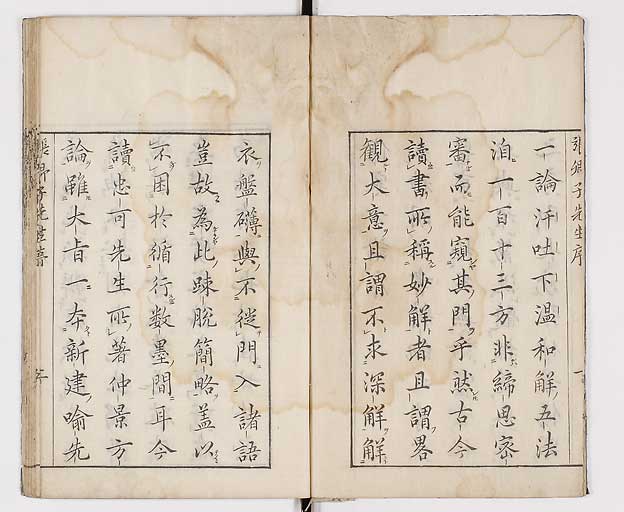 一論汗吐下温和解五法
洎一百十三方非締思密
審而能窺其門乎然古今
讀書所稱妙解者且謂畧
觀大意且謂不求深解解
衣盤礴與不從門入諸語
豈故為此踈脫簡略蓋以
不困於循行数墨間耳今
讀忠可先生所著仲景方
論雖大旨一本新建喻先